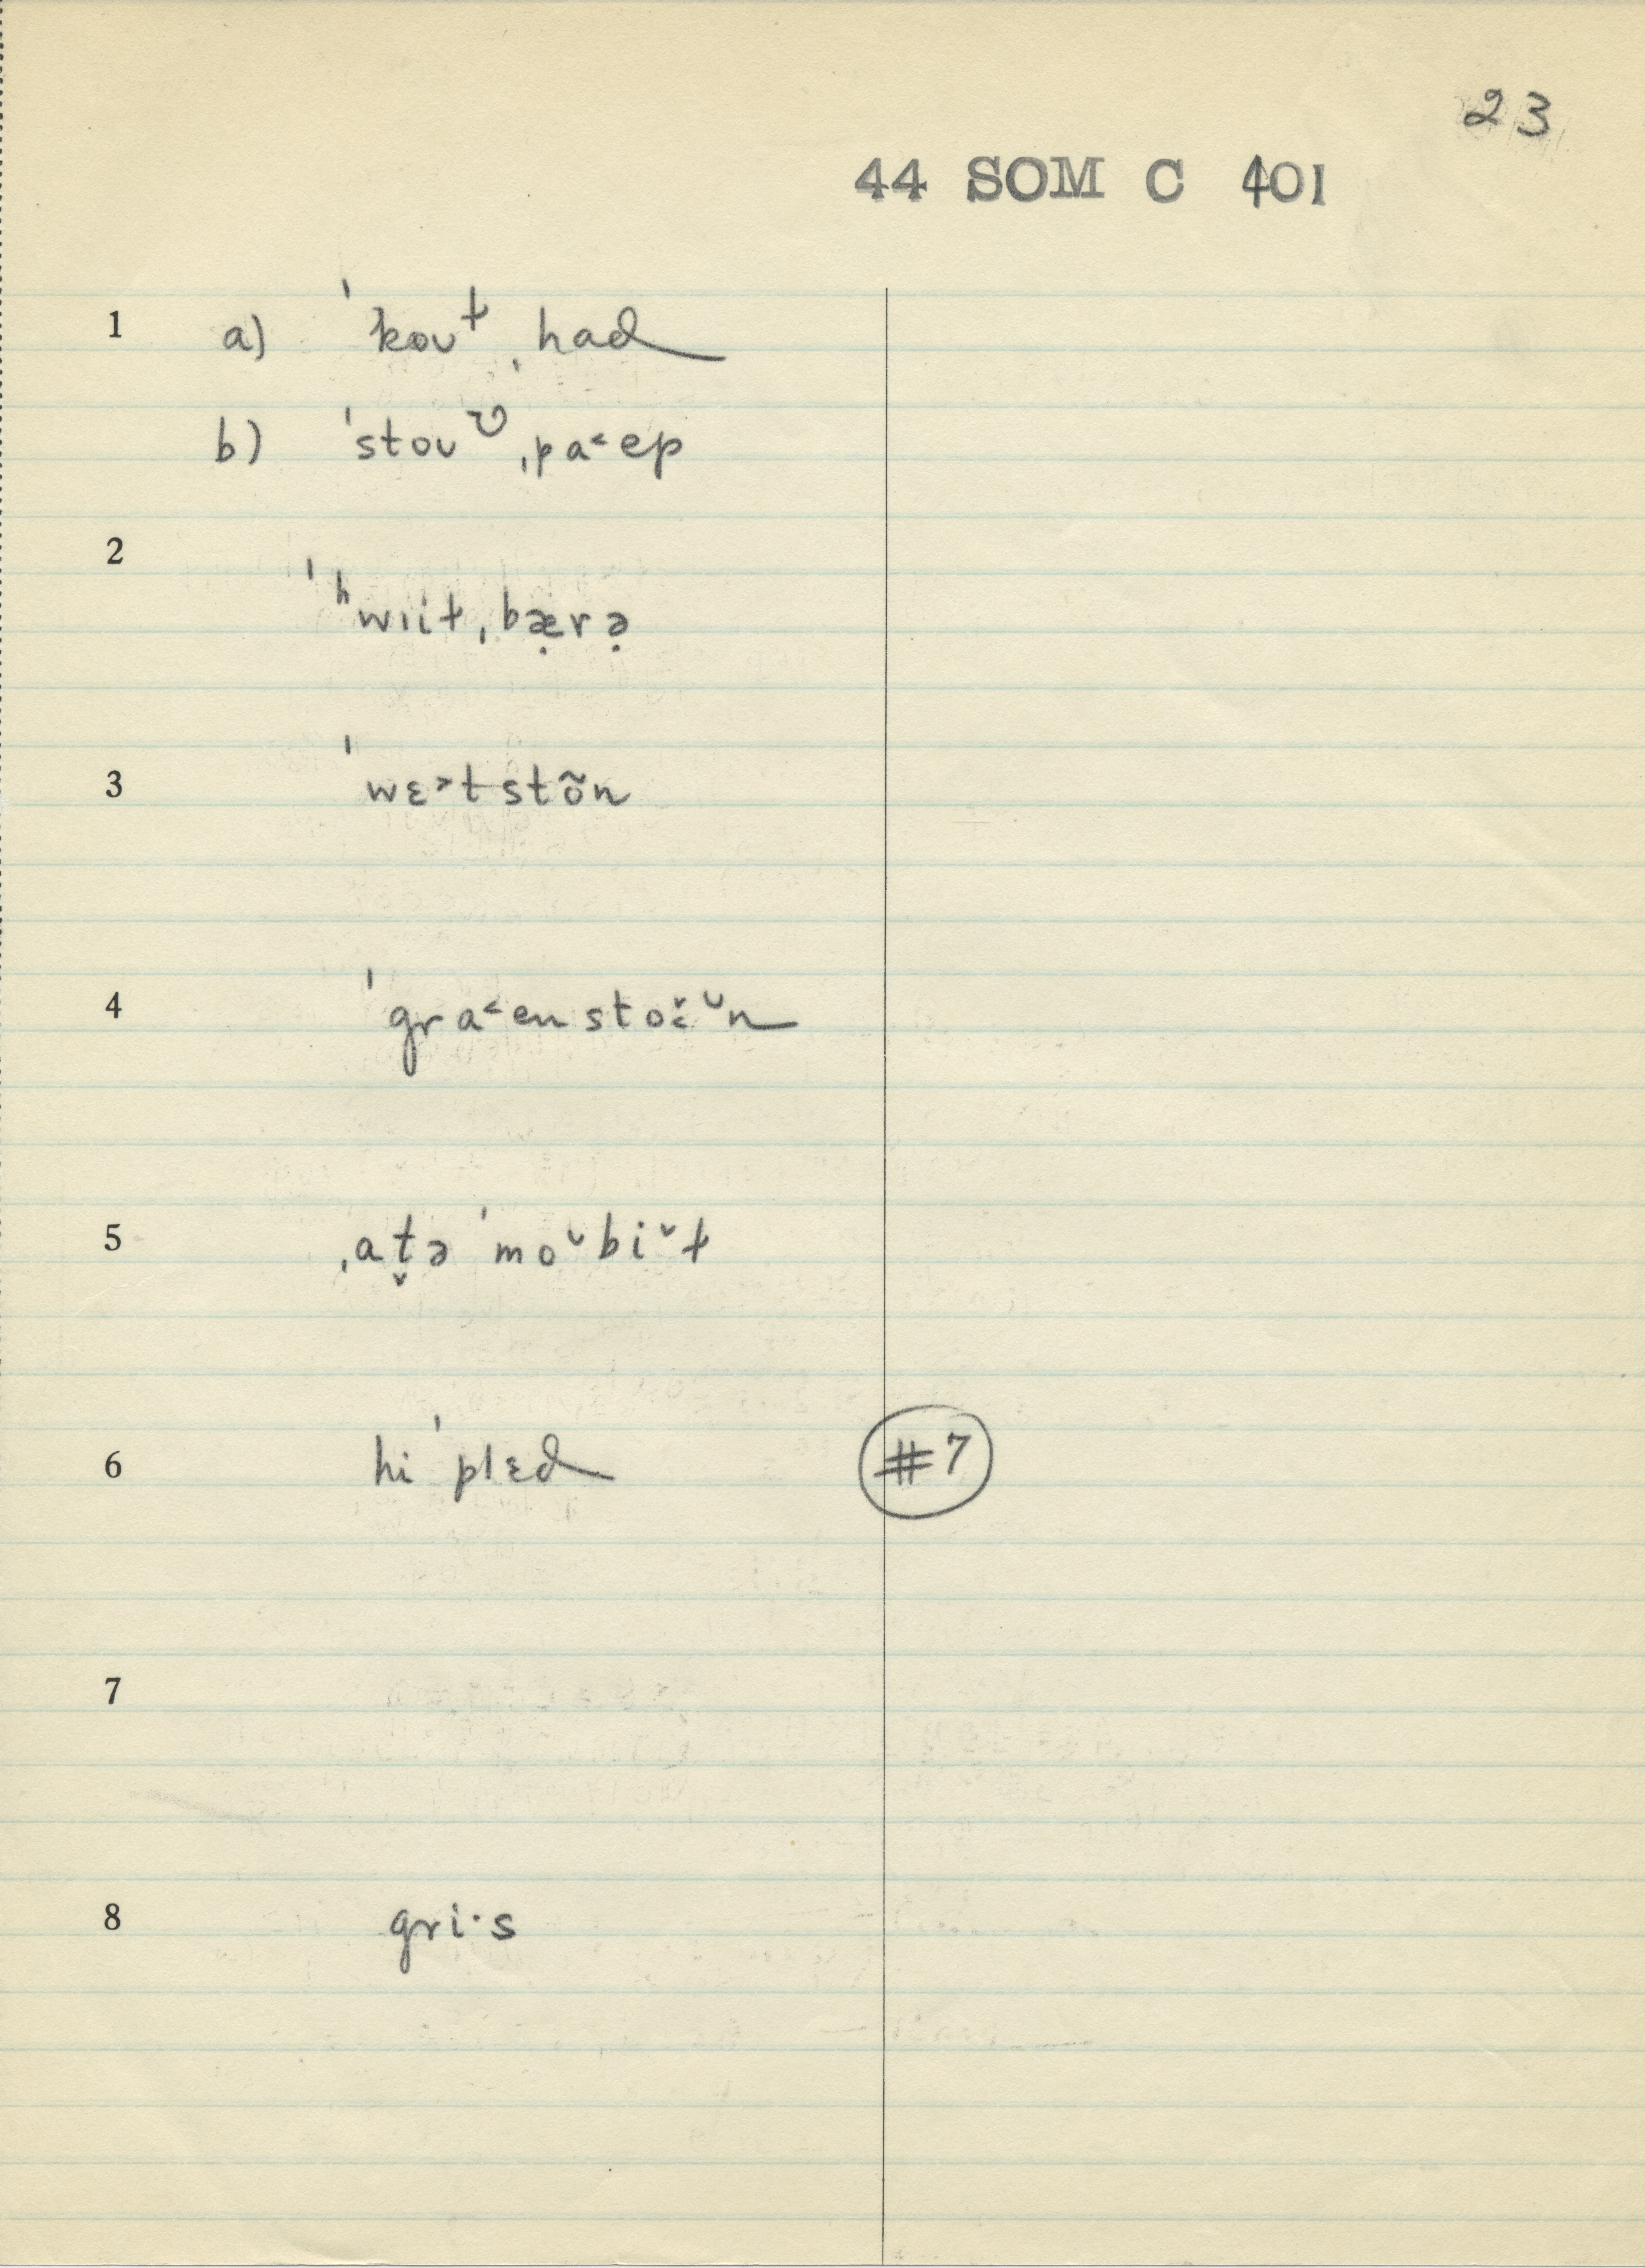 23
44 SOM C 401
1 a) ˈkoʊɫ ˌhad
b) ˈstoʊʊ ˌpa˂ep
2
ˈʰwɪiɫˌbæ̣rə̣
3 ˈwɛ˃tstõn
4 ˈgra˂enstoˇ·ˇn
5 ˌat̬əˈmoˇbiˇɫ
6 hiˈplɛd #7
7
8 gri·s